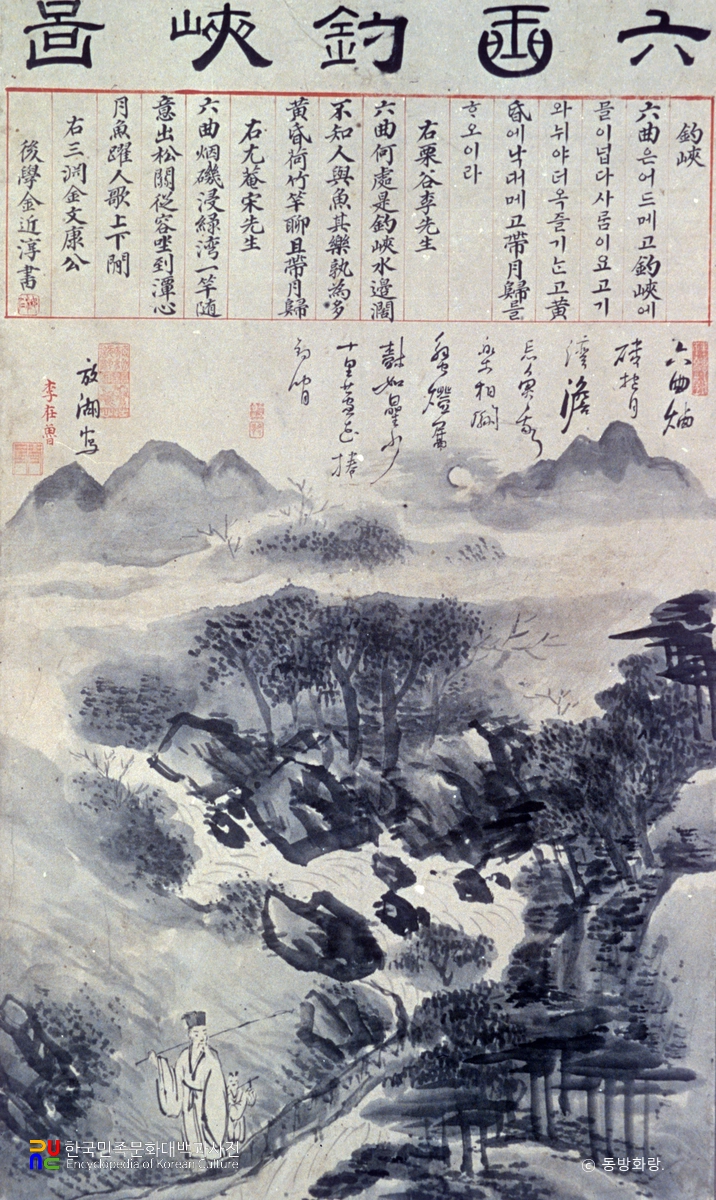 六曲釣峽圖
釣峽
六曲은어드메고釣峽에
믈이넙다사ᄅᆞᆷ이요고기
와뉘야더옥즐기ᄂᆞᆫ고黃
昏에낙대메고帶月歸를
ᄒᆞ오이라
右栗谷李先生
六曲何處是釣峽水邊濶
不知人與魚其樂孰為多
黃昏荷竹竿聊且帶月歸
右尤菴宋先生
六曲烟磯浸綠湾一竿随
意出松關從容坐到潭心
月魚躍人歌上下閒
右三淵金文康公
後學金近淳書
六曲烟
放湖寫
李在魯
한국민족문화대백과사전
Encyclopedia of Korean Culture
© 동방화랑.